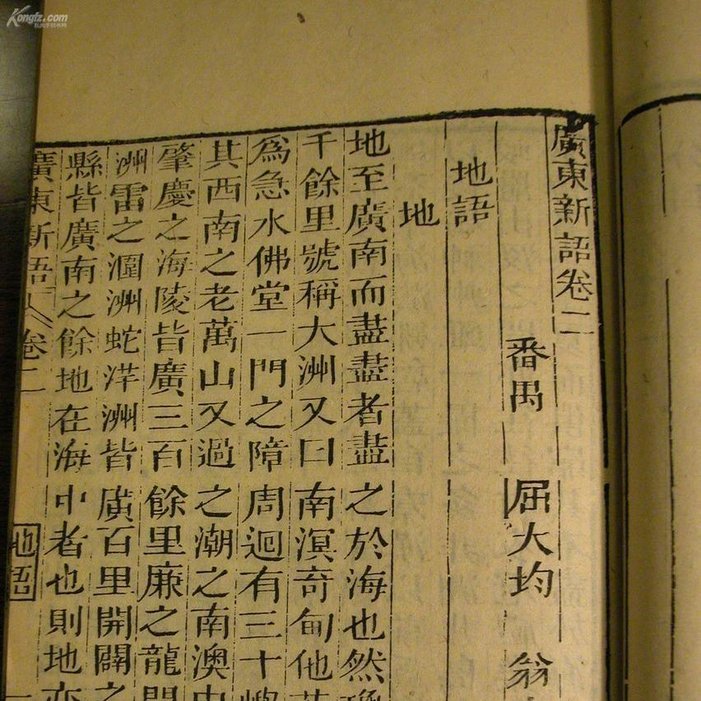 Kongfz.com
廣東新語卷二
番禺 屈大均 翁
地語
地
地至廣南而盡盡者盡之於海也然
千餘里號稱大洲又曰南溟奇甸他
為急水佛堂一門之障周迴有三十
其西南之老萬山又過之潮之南澳
肇慶之海陵皆廣三百餘里廉之龍門
洲雷之潿洲蛇洋洲皆廣百里開闢之
縣皆廣南之餘地在海中者也則地亦
廣東新語 卷二
地語